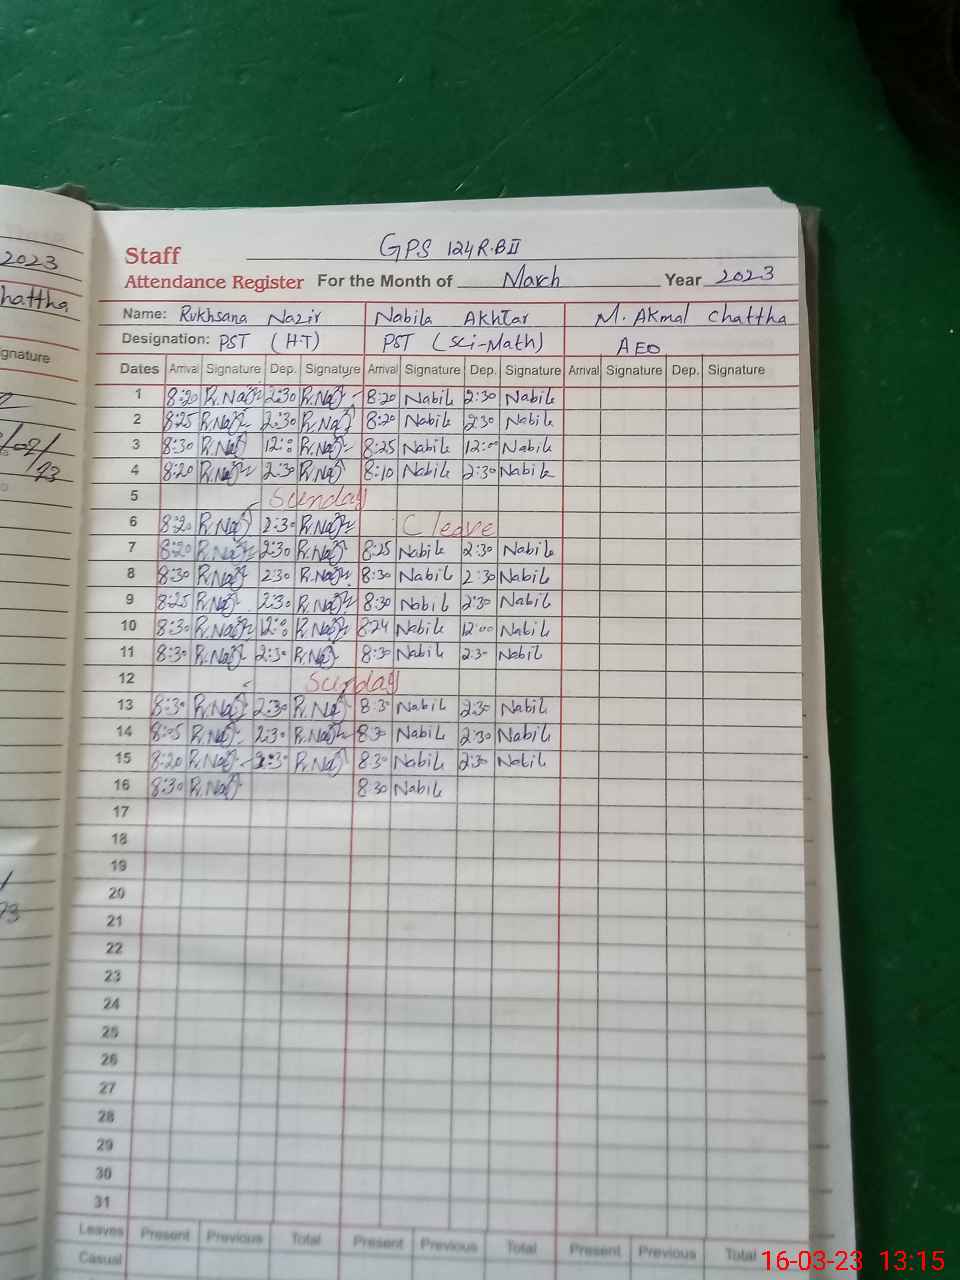 2023
hattha
gnature
/02/
23
Staff GPS 124 R.B II
Attendance Register For the Month of March Year 2023
Name: Rukhsana Nazir Nabila Akhtar M. Akmal Chattha
Designation: PST (H.T) PST (Sci-Math) AEO
Dates Arrival Signature Dep. Signature Arrival Signature Dep. Signature Arrival Signature Dep. Signature
1 8:20 R.Naz 2:30 R.Naz 8:20 Nabila 2:30 Nabila
2 8:25 R.Naz 2:30 R.Naz 8:20 Nabila 2:30 Nabila
3 8:30 R.Naz 12:00 R.Naz 8:25 Nabila 12:00 Nabila
4 8:20 R.Naz 2:30 R.Naz 8:10 Nabila 2:30 Nabila
5 Sunday
6 8:20 R.Naz 2:30 R.Naz C leave
7 8:20 R.Naz 2:30 R.Naz 8:25 Nabila 2:30 Nabila
8 8:30 R.Naz 2:30 R.Naz 8:30 Nabila 2:30 Nabila
9 8:25 R.Naz 2:30 R.Naz 8:30 Nabila 2:30 Nabila
10 8:30 R.Naz 12:00 R.Naz 8:24 Nabila 12:00 Nabila
11 8:30 R.Naz 2:30 R.Naz 8:30 Nabila 2:30 Nabila
12 Sunday
13 8:30 R.Naz 2:30 R.Naz 8:30 Nabila 2:30 Nabila
14 8:05 R.Naz 2:30 R.Naz 8:30 Nabila 2:30 Nabila
15 8:20 R.Naz 2:30 R.Naz 8:30 Nabila 2:30 Nabila
16 8:30 R.Naz 8:30 Nabila
17
18
19
20
21
22
23
24
25
26
27
28
29
30
31
Leaves Present Previous Total Present Previous Total Present Previous Total
Casual
16-03-23 13:15